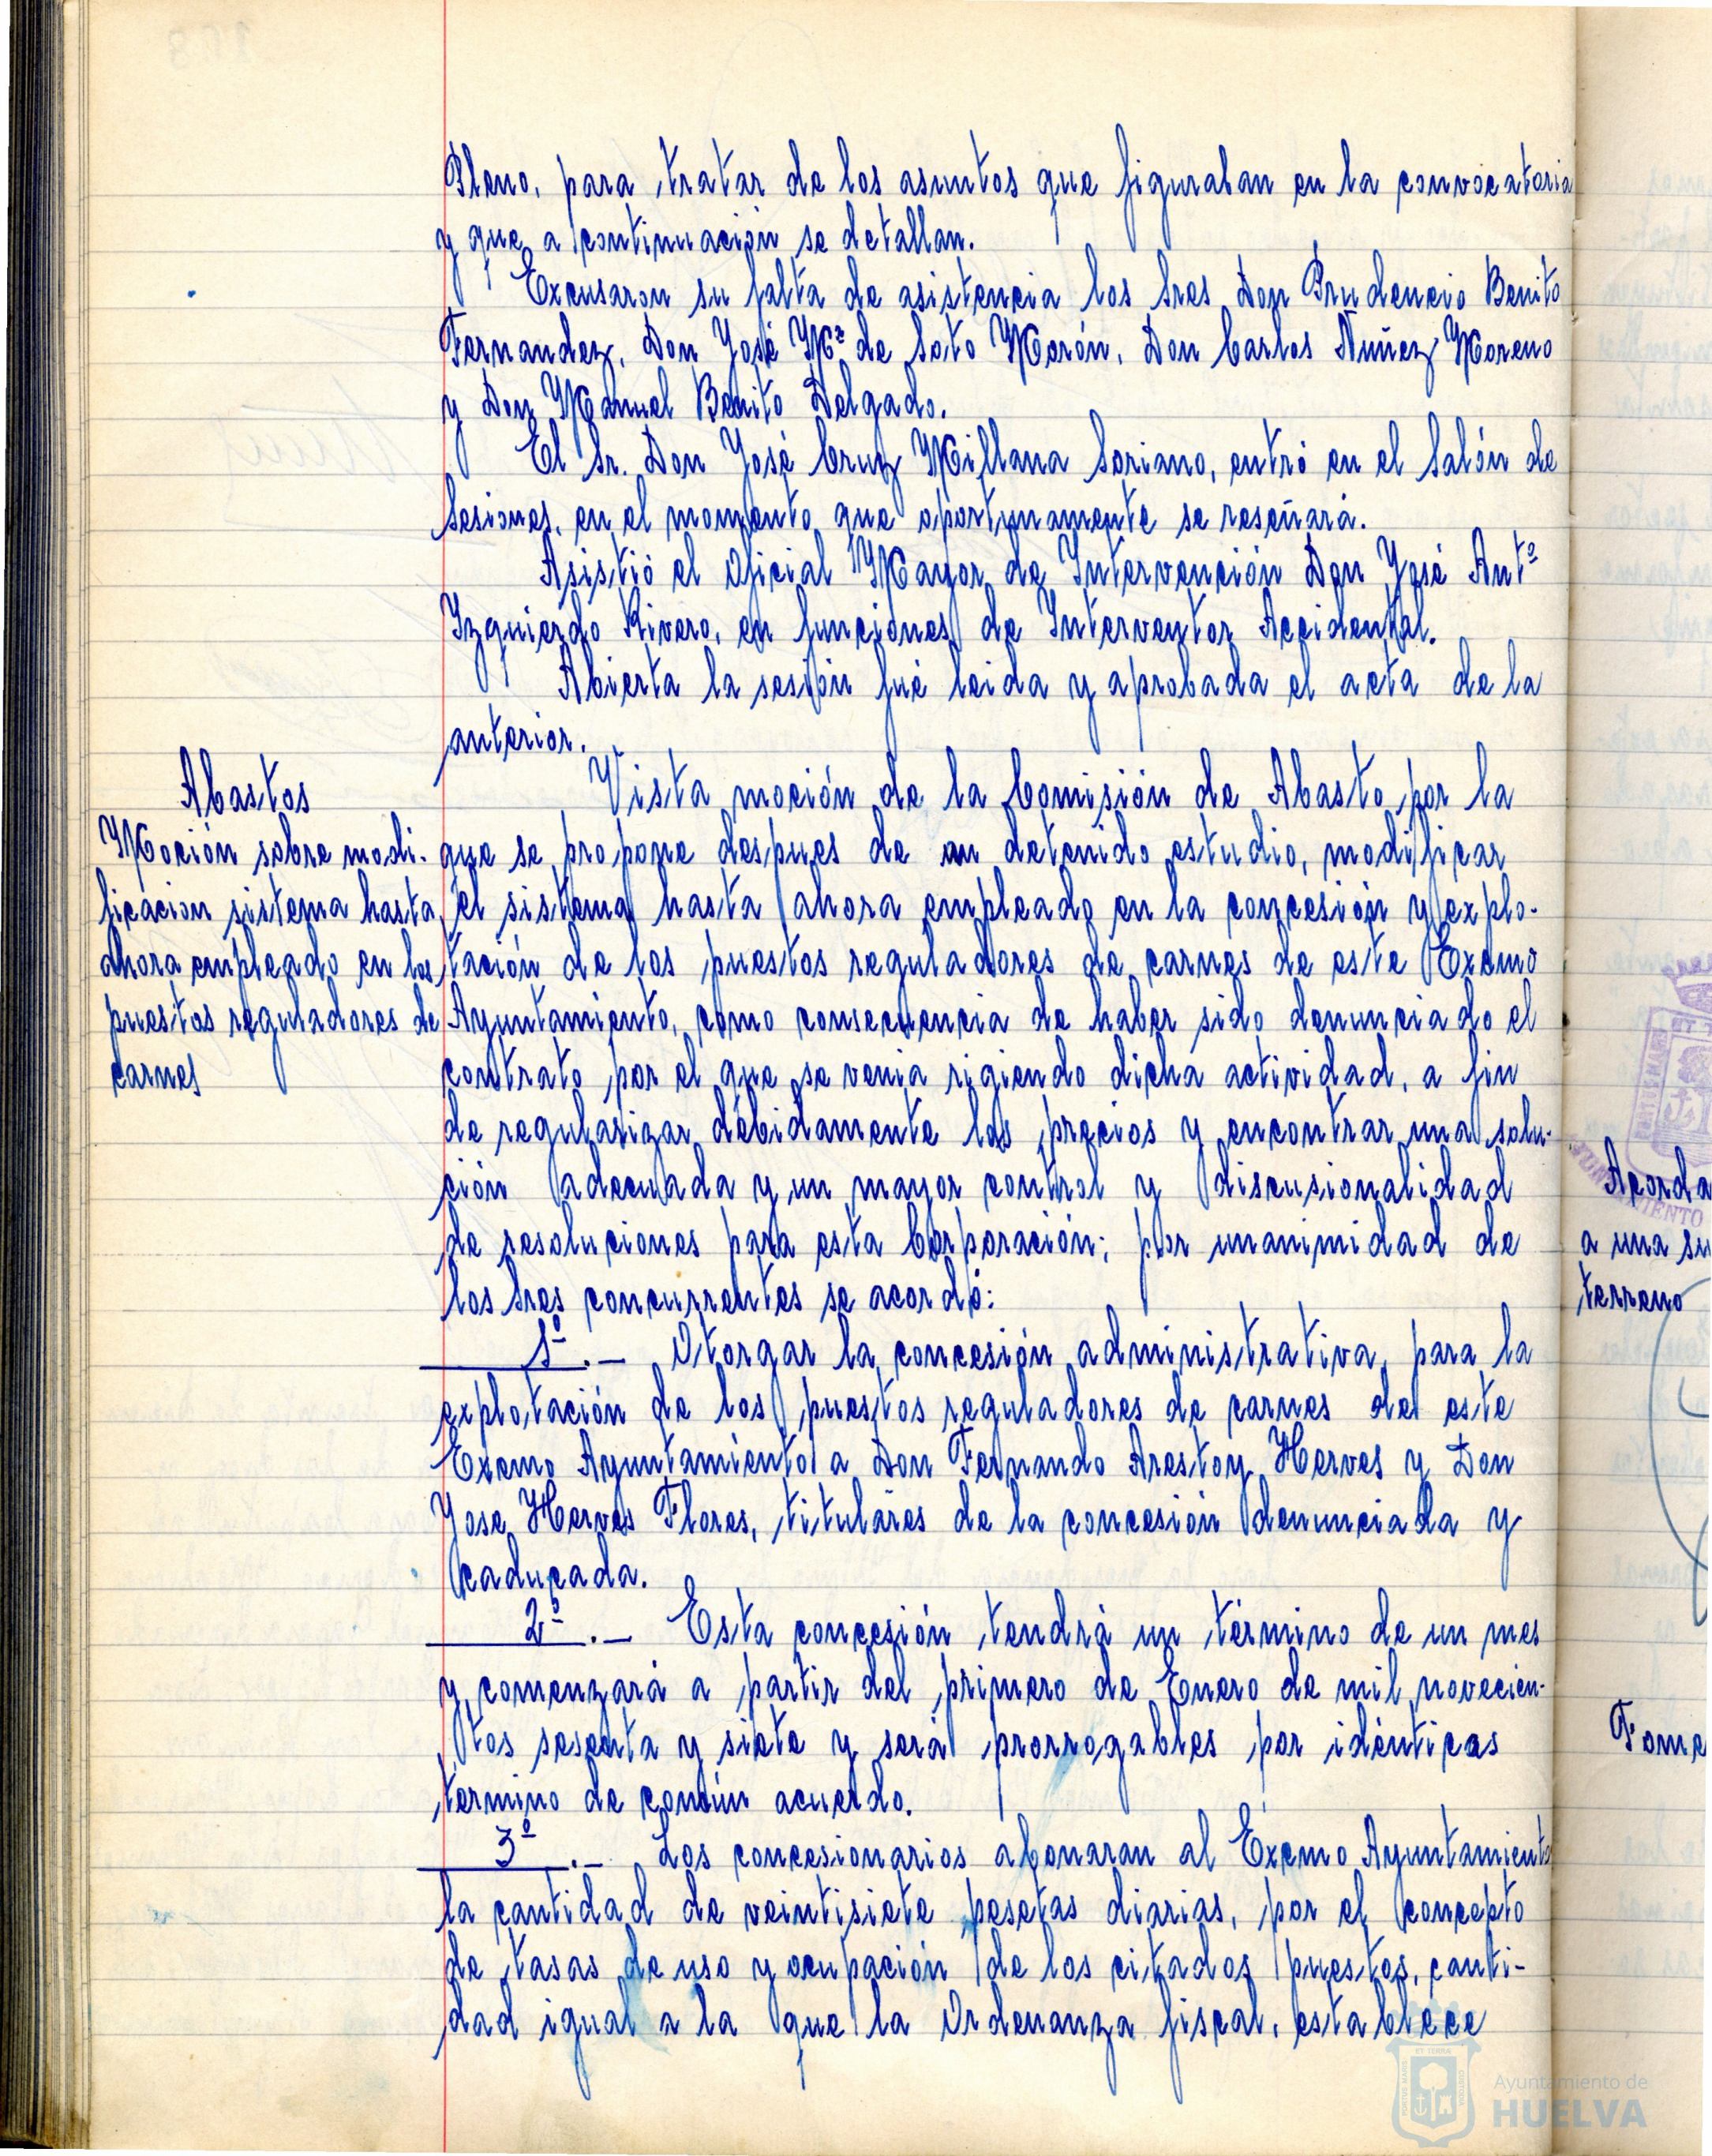 Pleno, para tratar de los asuntos que figuraban en la convocatoria
y que a continuación se detallan.
Excusaron su falta de asistencia los Sres Don Prudencio Benito
Fernandez, Don José Mª de Soto Morón, Don Carlos Nuñez Moreno
y Don Manuel Benito Delgado.
El Sr. Don José Cruz Millana Soriano, entró en el Salón de
Sesiones, en el momento que oportunamente se reseñará.
Asistió el Oficial Mayor de Intervención Don José Antº
Izquierdo Rivero, en funciones de Interventor Accidental.
Abierta la sesión fué leida y aprobada el acta de la
anterior.
Abastos
Moción sobre modi-
ficacion sistema hasta
ahora empleado en los
puestos reguladores de
carnes
Vista moción de la Comisión de Abasto por la
que se propone despues de un detenido estudio, modificar
el sistema hasta ahora empleado en la concesión y explo-
tación de los puestos reguladores de carnes de este Excmo
Ayuntamiento, como consecuencia de haber sido denunciado el
contrato por el que se venia rigiendo dicha actividad, a fin
de regularizar debidamente los precios y encontrar una solu-
ción adecuada y un mayor control y discusionalidad
de resoluciones para esta Corporación; por unanimidad de
los Sres concurrentes se acordó:
1º.- Otorgar la concesión administrativa, para la
explotación de los puestos reguladores de carnes de este
Excmo Ayuntamiento a Don Fernando Arestoy Herves y Don
Jose Herves Flores, titulares de la concesión denunciada y
caducada.
2º.- Esta concesión tendrá un término de un mes
y comenzará a partir del primero de Enero de mil novecien-
tos sesenta y siete y será prorrogables por idénticas
termino de común acuerdo.
3º.- Los concesionarios abonaran al Excmo Ayuntamiento
la cantidad de veintisiete pesetas diarias, por el concepto
de tasas de uso y ocupación de los citados puestos, canti-
dad igual a la que la Ordenanza fiscal, establece
Acorda
a una su
terreno
Fome
Ayuntamiento de
HUELVA